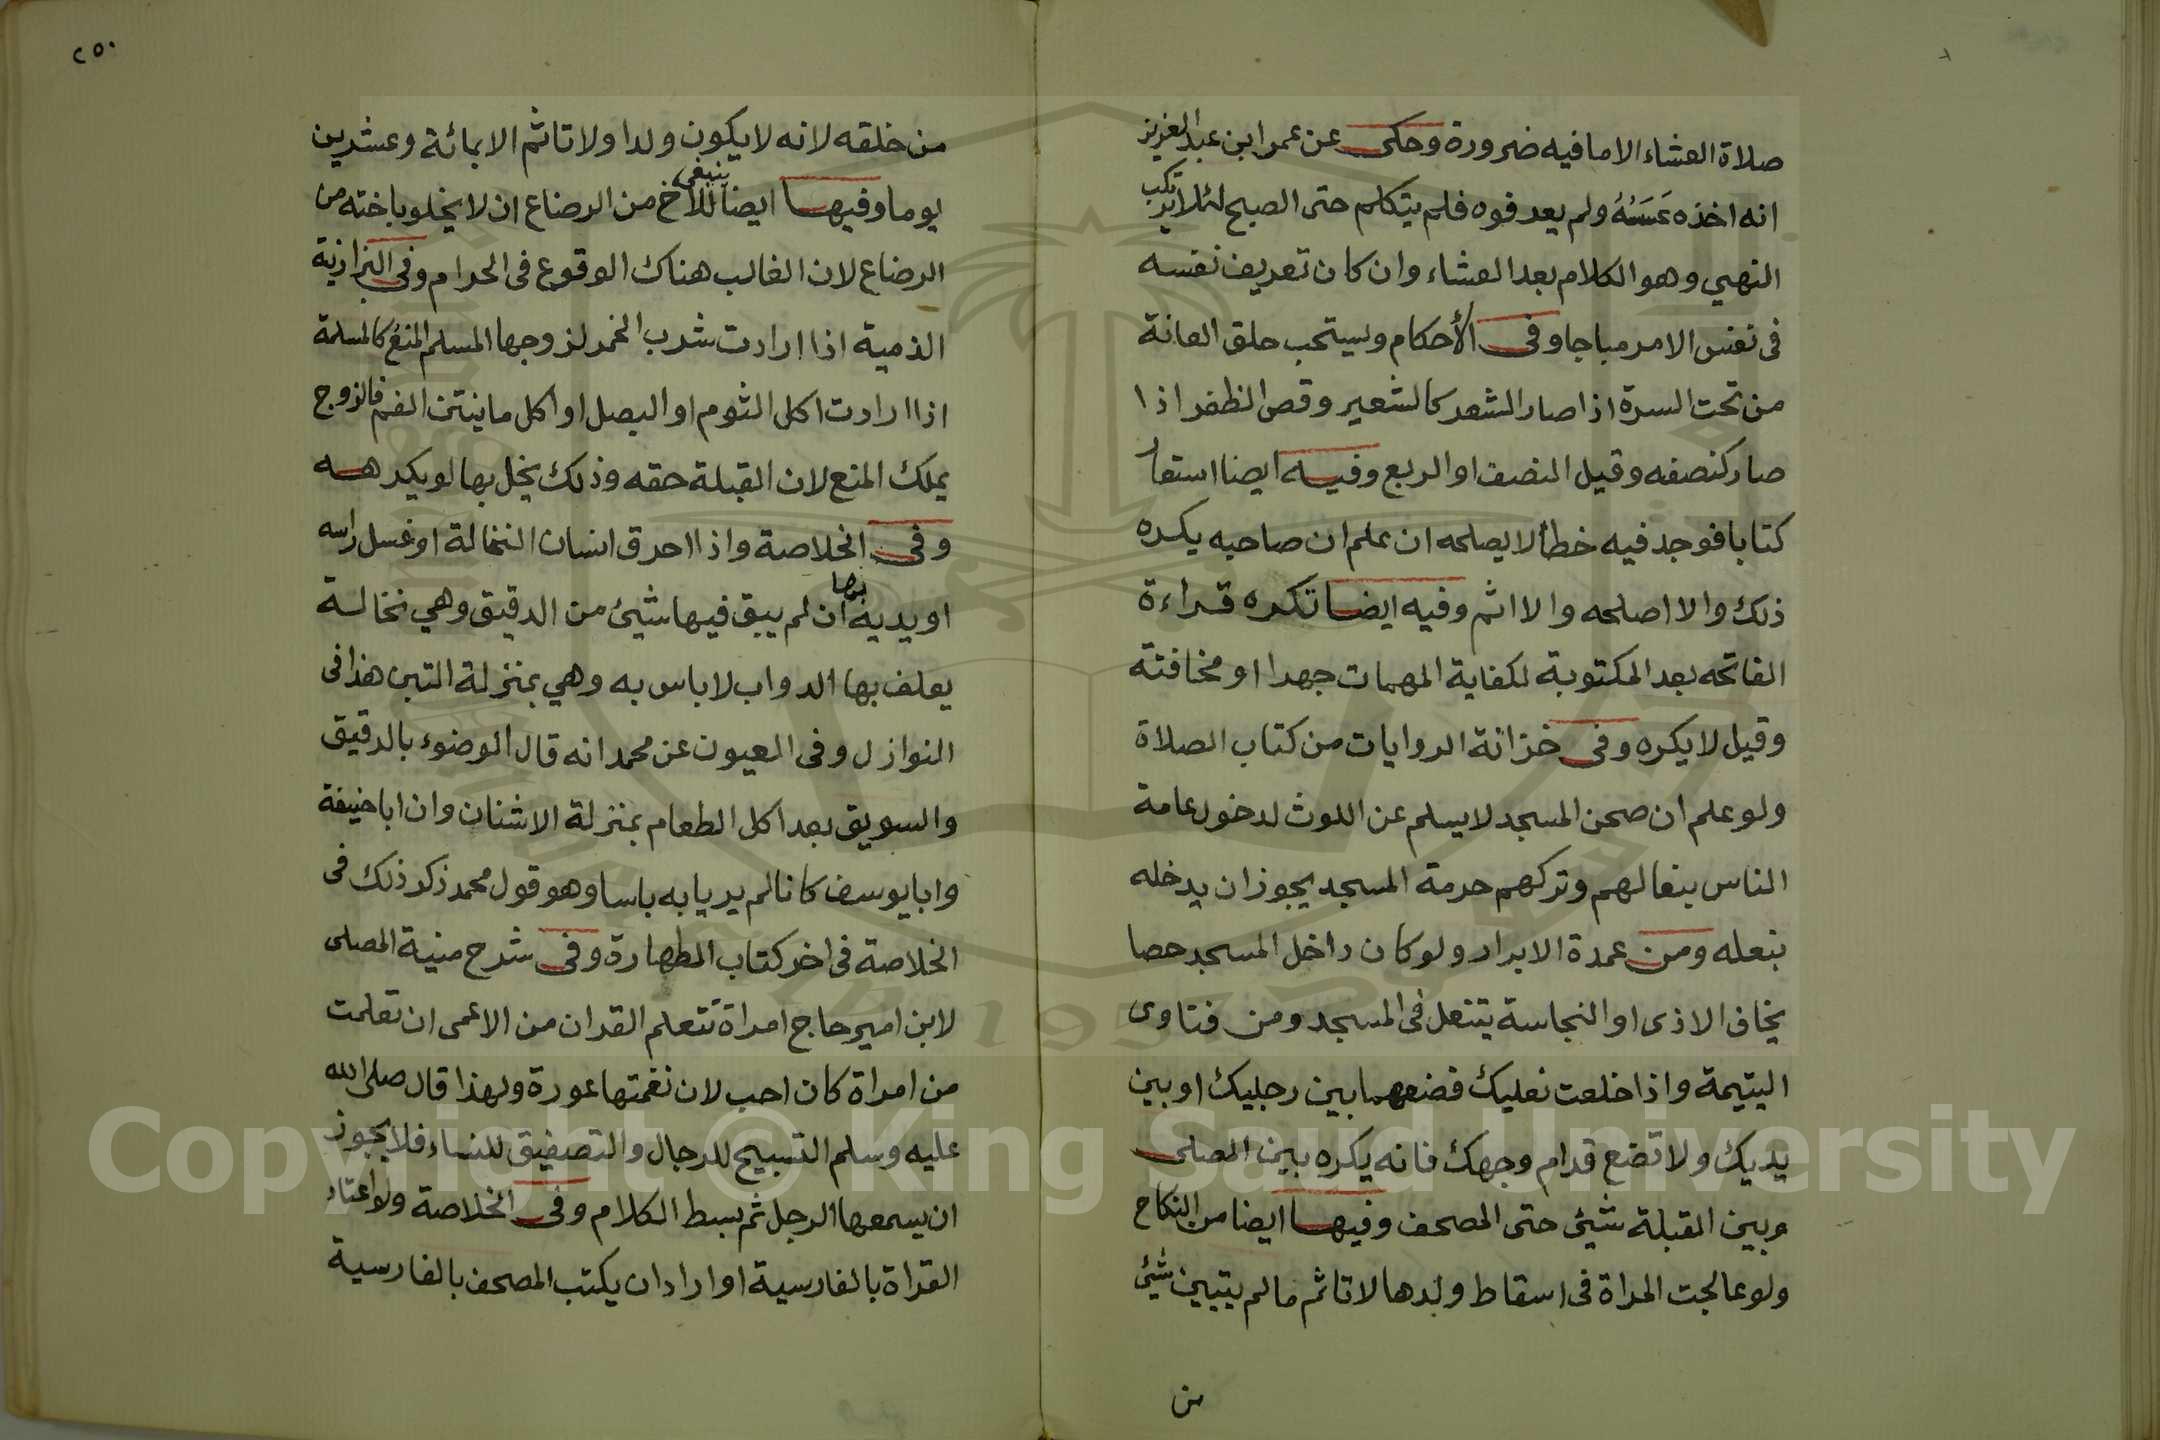 صلاة العشاء الا ما فيه ضرورة وحكى عن عمر ابن عبد العزيز
انه اخذه عَسَسُهُ ولم يعرفوه فلم يتكلم حتى الصبح لئلا يرتكب
النهي وهو الكلام بعد العشاء وان كان تعريف نفسه
فى نفس الامر مباحا وفى الأحكام ويستحب حلق العانة
من تحت السرة اذا صار الشعر كالشعير وقص الظفر اذا
صار كنصفه وقيل النصف او الربع وفيه ايضا استعار
كتابا فوجد فيه خطأ لا يصلحه ان علم ان صاحبه يكره
ذلك والا اصلحه والا اثم وفيه ايضا تكره قراءة
الفاتحه بعد المكتوبة لكفاية المهمات جهرا او مخافتة
وقيل لا يكره وفى خزانة الروايات من كتاب الصلاة
ولو علم ان صحن المسجد لا يسلم عن اللوث لدخول عامة
الناس بنعالهم وتركهم حرمة المسجد يجوز ان يدخله
بنعله ومن عمدة الابرار ولو كان داخل المسجد حصا
يخاف الاذى او النجاسة يتنعل فى المسجد ومن فتاوى
اليتيمة واذا خلعت نعليك فضعهما بين رجليك او بين
يديك ولا تضع قدام وجهك فانه يكره بين المصلى
وبين القبلة شيئ حتى المصحف وفيها ايضا من النكاح
ولو عالجت المراة فى اسقاط ولدها لا تاثم ما لم يتبين شيئ
من
٢٥٠
من خلقه لانه لا يكون ولدا ولا تاثم الا بمائة وعشرين
يوما وفيها ايضا ينبغى للأخ من الرضاع ان لا يخلو باخته من
الرضاع لان الغالب هناك الوقوع فى الحرام وفى البزازية
الذمية اذا ارادت شرب الخمر لزوجها المسلم المنع كالمسلمة
اذا ارادت اكل الثوم او البصل او اكل ما ينتن الفم فالزوج
يملك المنع لان القبلة حقه وذلك يخل بها لو يكرهه
وفى الخلاصة واذا احرق انسان النخالة او غسل راسه
او يديه بها ان لم يبق فيها شيئ من الدقيق وهي نخالة
يعلف بها الدواب لا باس به وهي بمنزلة التبن هذا فى
النوازل وفى العيون عن محمد انه قال الوضوء بالدقيق
والسويق بعد اكل الطعام بمنزلة الاشنان وان ابا حنيفة
وابا يوسف كانا لم يريا به باسا وهو قول محمد ذكر ذلك فى
الخلاصة فى اخر كتاب الطهارة وفى شرح منية المصلى
لابن امير حاج امراة تتعلم القران من الاعمى ان تعلمت
من امراة كان احب لان نغمتها عورة ولهذا قال صلى الله
عليه وسلم التسبيح للرجال والتصفيق للنساء فلا يجوز
ان يسمعها الرجل ثم بسط الكلام وفى الخلاصة ولو اعتاد
القراة بالفارسية او اراد ان يكتب المصحف بالفارسية
Copyright © King Saud University